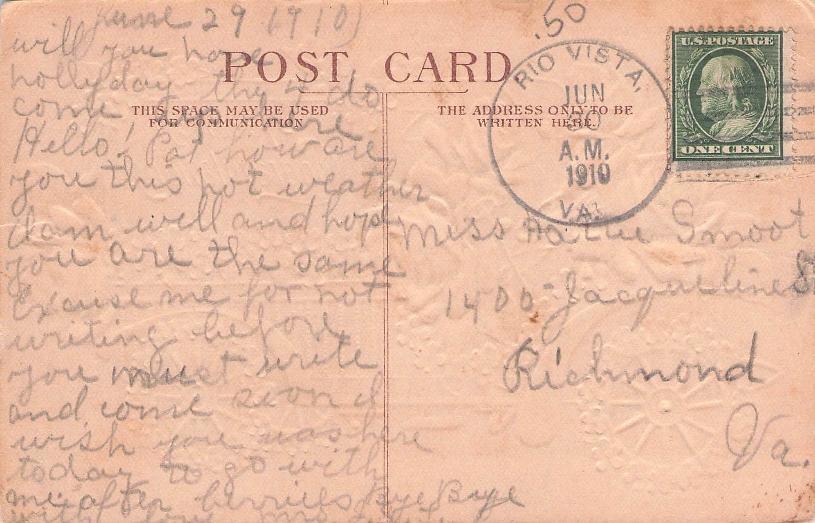 June 29 1910
will you have
hollyday the 4 do
come
Hello! Pat how are
you this hot weather
I am well and hope
you are the same
Excuse me for not
writing before
you must write
and come soon I
wish you was here
today to go with
me after berries Bye Bye
with love
POST CARD
THIS SPACE MAY BE USED
FOR COMMUNICATION
THE ADDRESS ONLY TO BE
WRITTEN HERE.
.50
RIO VISTA,
JUN
30
A.M.
1910
VA.
U.S. POSTAGE
ONE CENT
Miss Hattie Smoot
1400 Jacqueline St
Richmond
Va.